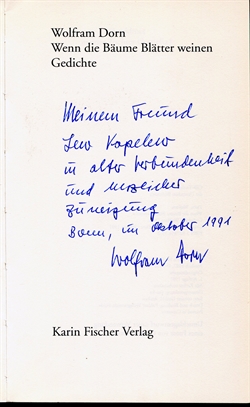 Wolfram Dorn
Wenn die Bäume Blätter weinen
Gedichte
Meinem Freund
Lew Kopelew
in alter Verbundenheit
und herzlicher
Zuneigung
Bonn, im Oktober 1991
Wolfram Dorn
Karin Fischer Verlag